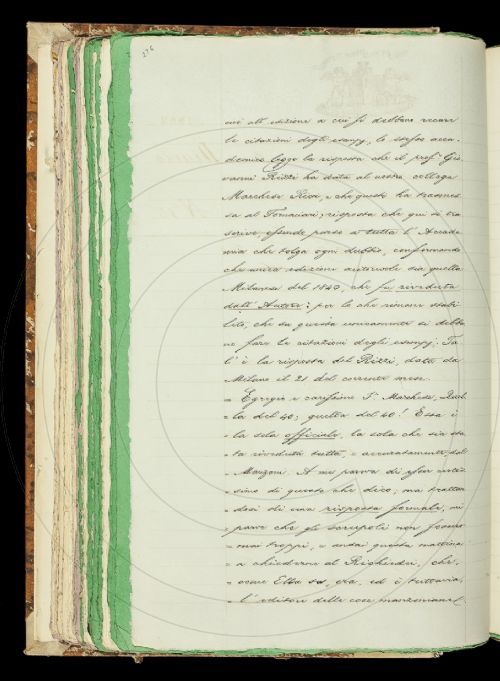 276
cui all' edizione a cui si debbono recare
le citazioni degli esempj, lo stesso acca-
demico legge la risposta che il prof. Gio-
vanni Rizzi ha data al nostro collega
Marchese Ricci, e che questi ha trasmes-
sa al Tomaciani; risposta che qui si tra-
scrive, essendo parso a tutta l' Accade-
mia che tolga ogni dubbio, confermando
che unica edizione autorevole sia quella
Milanese del 1840, che fu riveduta
dall' Autore; per lo che rimane stabi-
lito, che su questa unicamente si debba-
no fare le citazioni degli esempj. Ta-
l' è la risposta del Rizzi, data da
Milano il 21 del corrente mese.
= Egregio e carissimo S.r Marchese, Quel-
= la del 40; quella del 40! Essa è
= la sola officiale, la sola che sia sta-
= ta riveduta tutta, e accuratamente, dal
= Manzoni. A me pareva di esser certis-
simo di questo che dico; ma trattan-
dosi di una risposta formale, mi
= parve che gli scrupoli non fossero
= mai troppi, e andai questa mattina
= a chiedere al Righetti, che,
= come Ella sa, era, ed è tuttavia,
= l' editore delle cose manzoniane